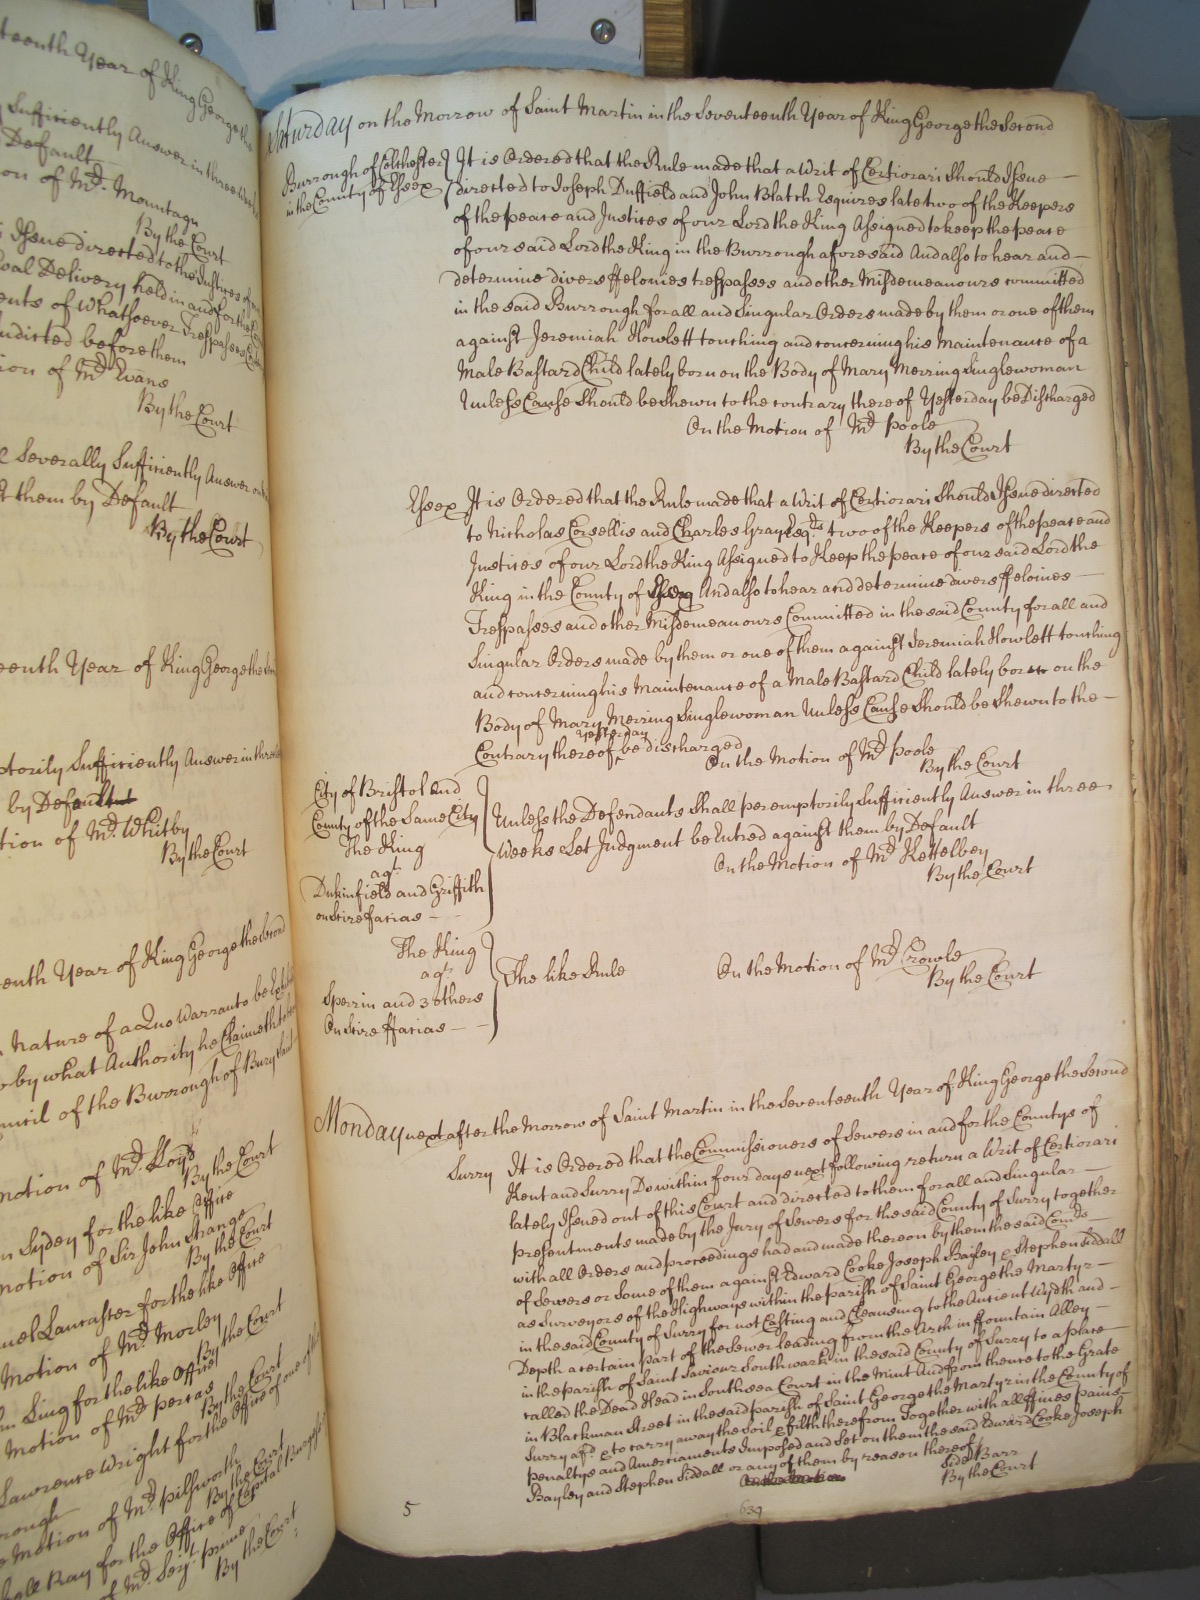 teenth Year of King George the
Sufficiently Answer in three
Default
on of Mr. Mountagu
By the Court
Issue directed to the Justices of
Goal Delivery held in and for the
ents of Whatsoever Trespasses
Indicted before them
ion of Mr Evans
By the Court
Severally Sufficiently Answer
them by Default
By the Court
eenth Year of King George the
ptorily Sufficiently Answer in three
by Default
tion of Mr Whitby
By the Court
eenth Year of King George the Second
Nature of a Quo Warranto be
by what Authority he Claimeth
uncil of the Burrough of Bury
motion of Mr Lloyd
By the Court
n Sydey for the like Office
motion of Sir John Strange
By the Court
uel Lancaster for the like Office
Motion of Mr Morley
By the Court
Sing for the like Office
Motion of Mr
By the Court
Lawrence Wright for the Office of one of the
rough
Motion of Mr pilsworth
By the Court
Ray for the Office of Capital Burgess
of Mr Serjt. prime
By the Court
Saturday on the Morrow of Saint Martin in the Seventeenth Year of King George the Second
Burrough of Colchester
in the County of Essex
It is Ordered that the Rule made that a Writ of Certiorari Should Issue
directed to Joseph Duffield and John Blatch Esquires late two of the Keepers
of the peace and Justices of our Lord the King Assigned to keep the peace
of our said Lord the King in the Burrough aforesaid And also to hear and
determine divers ffelonies trespasses and other Misdemeanours committed
in the said Burrough for all and Singular Orders made by them or one of them
against Jeremiah Howlett touching and concerning his Maintenance of a
Male Bastard Child lately born on the Body of Mary Merring Singlewoman
Unless Cause Should be Shewn to the contrary thereof Yesterday be Discharged
On the Motion of Mr Poole
By the Court
Essex It is Ordered that the Rule made that a Writ of Certiorari Should Issue directed
to Nicholas Corsellis and Charles Gray Esqrs two of the Keepers of the peace and
Justices of our Lord the King Assigned to Keep the peace of our said Lord the
King in the County of Essex And also to hear and determine divers ffelonies
Trespasses and other Misdemeanours Committed in the said County for all and
Singular Orders made by them or one of them against Jeremiah Howlett touching
and concerning his Maintenance of a Male Bastard Child lately born on the
Body of Mary Merring Singlewoman Unless Cause Should be Shewn to the
yesterday
Contrary thereof be discharged
On the Motion of Mr Poole
By the Court
City of Bristol and
County of the Same City
The King
agt.
Dukinfield and Griffith
on Scire facias
Unless the Defendants Shall peremptorily Sufficiently Answer in three
Weeks Let Judgment be Entred against them by Default
On the Motion of Mr Kettelbey
By the Court
The King
agt.
Sperrin and 3 others
On Scire ffacias
The like Rule
On the Motion of Mr Crowle
By the Court
Monday next after the Morrow of Saint Martin in the Seventeenth Year of King George the Second
Surry It is Ordered that the Commissioners of Sewers in and for the Countys of
Kent and Surry Do within four days next following return a Writ of Certiorari
lately Issued out of this Court and directed to them for all and Singular
presentments made by the Jury of Sewers for the said County of Surry together
with all Orders and proceedings had and made thereon by them the said Comrs
of Sewers or Some of them against Edward Cooke Joseph Bayley & Stephen Siddall
as Surveyors of the Highways within the parish of Saint George the Martyr
in the said County of Surry for not Casting and Cleansing to the Ancient Wydth and
Depth a certain part of the Sewer leading from the Arch in ffountain Alley
in the parish of Saint Saviour Southwark in the said County of Surry to a place
called the Dead Head in Southsea Court in the Mint And from thence to the Grate
in Blackman Street in the said parish of Saint George the Martyr in the County of
Surry afd. & to carry away the Soil & filth therefrom Together with all ffines pains
penaltys and Amerciaments Imposed and Set on them the said Edward Cooke Joseph
Bayley and Stephen Siddall or any of them by reason thereof
Side Barr
By the Court
5
639